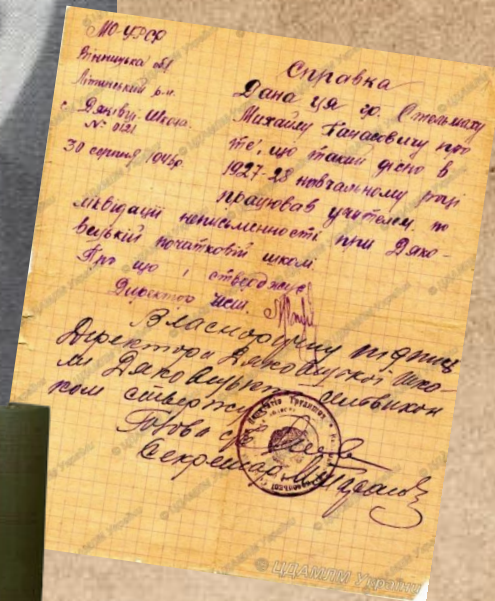 МО-УРСР
Вінницька обл
Літинський р-н.
с Дяківці Школа.
№ 0121
30 серпня 1946р
Справка
Дана ця гр. Стельмаху
Михайлу Панасовичу про
те, що такий дісно в
1927-28 навчальному році
працював учителем по
ліквідації неписьменності при Дяко-
вецькій початковій школі
Про що і стверджує
Директор школи
Власноручну підпись
Директора Дяковецької шко-
ли Дяковецький сільвикон
ком стверджує
Голова с/в
Секретар
© ЦДАМЛМ України